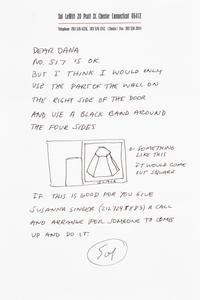 Sol LeWitt 20 Pratt St. Chester Connecticut 06412
DEAR DANA
NO. 517 IS OK
BUT I THINK I WOULD ONLY
USE THE PART OF THE WALL ON
THE RIGHT SIDE OF THE DOOR
AND USE A BLACK BAND AROUND
THE FOUR SIDES
SOMETHING
LIKE THIS
IT WOULD COME
OUT SQUARE
IF THIS IS GOOD FOR YOU GIVE
SUSANNA SINGER A CALL
AND ARRANGE FOR SOMEONE TO COME
UP AND DO IT.
Sol